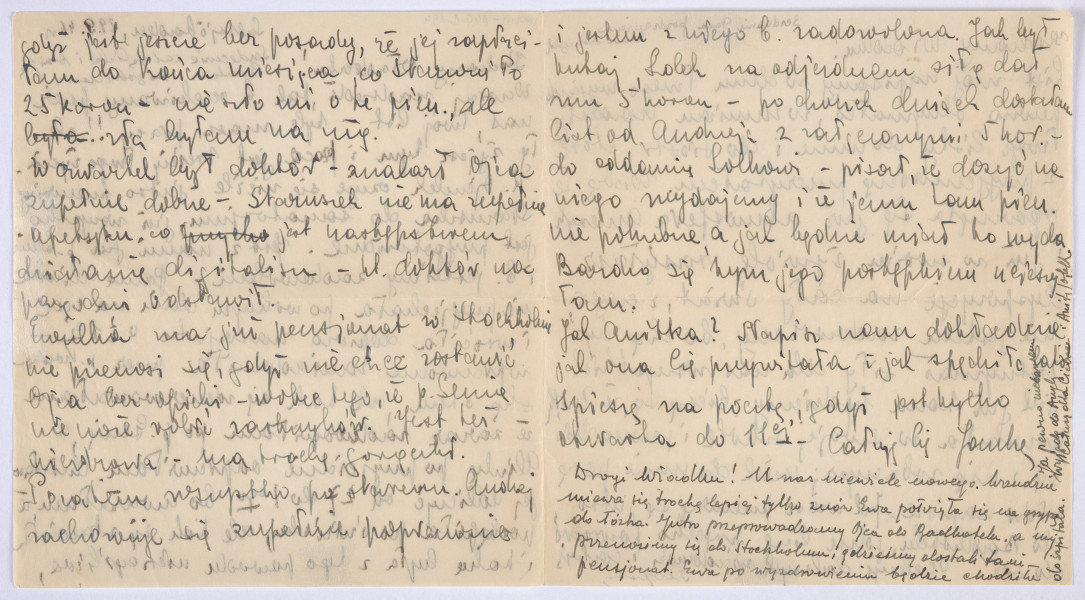 gdyż jest jeszcze bez posady, że jej zapłaci-
łam do końca miesiąca co stanowiło
25 koron - nie szło mi o te pien., ale
była zła byłam na nią.
W czwartek był doktór - znalazł Ojca
zupełnie dobrze -. Staruszek nie ma zupełnie
apetytu, co jest następstwem
działania digitalisu - tt. doktór na
razie odstawił.
Ewulka ma już pensjonat w Stockholmie
nie przenosi się, gdyż nie chce zostawić
Ojca bez opieki - wobec tego, że p. Semie
nie może robić zastrzyków. Jest też
- ma trochę gorączki.
Poza tem wszystko po staremu. Andrzej
zachowuje się zupełnie poprawnie
i jestem z niego b. zadowolona. Jak był
tutaj, Lolek na odjezdnem siłą dał
mu 5 koron - po dwóch dniach dostałam
list od Andrzeja z załączonymi 5 kor -
do oddania Lolkowi - pisał, że dosyć na
niego wydajemy i że jemu tam pien.
nie potrzebne, a jak będzie miał to wyda.
Bardzo się tym jego postępkiem ucieszy-
łam.
Jak Anitka? Napisz nam dokładnie
jak ona Cię przywitała i jak spędził
Spieszę na pocztę, gdyż jest tylko
otwarta do 11ej - Całuję Cię Janka
Drogi Władku! U nas niewiele nowego. Wandzie
miewa się trochę lepiej tylko znów Ewa położyła się na grypę
do łóżka. Jutro przeprowadzamy Ojca do Badhotelu, a my
przenosimy się do Stockholmu, gdzieśmy dostali tam -
pensjonat. Ewa po wyzdrowieniu będzie chodziła
do szpitala